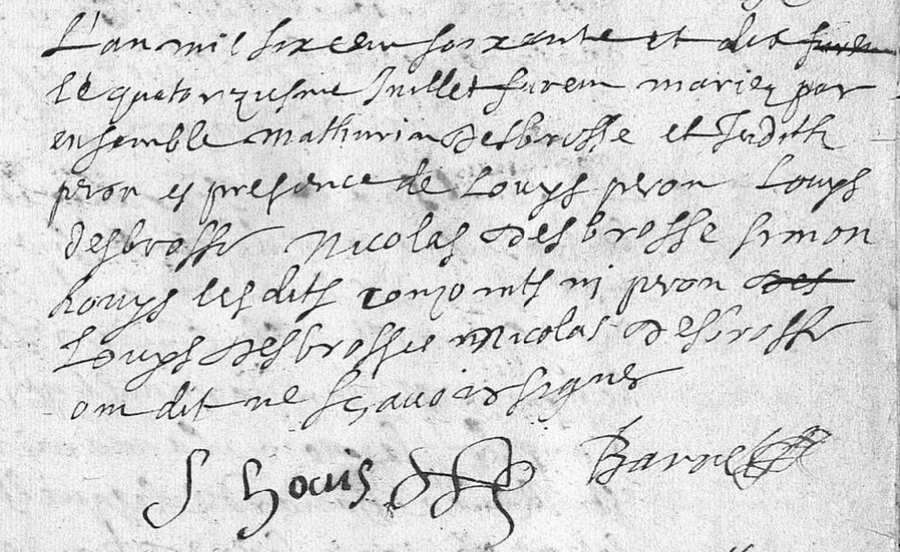 L'an mil six cent soixante et dix furen
le quatorziesme Juillet furent mariez par
ensemble Mathurin Desbrosse et Judith
peron es presence de Louys peron Louys
desbrosse Nicolas Desbrosse simon
houys lesdits conjoints ni peron des
Louys Desbrosse Nicolas Desbrosse
ont dit ne sçavoir signer
S houis Barre